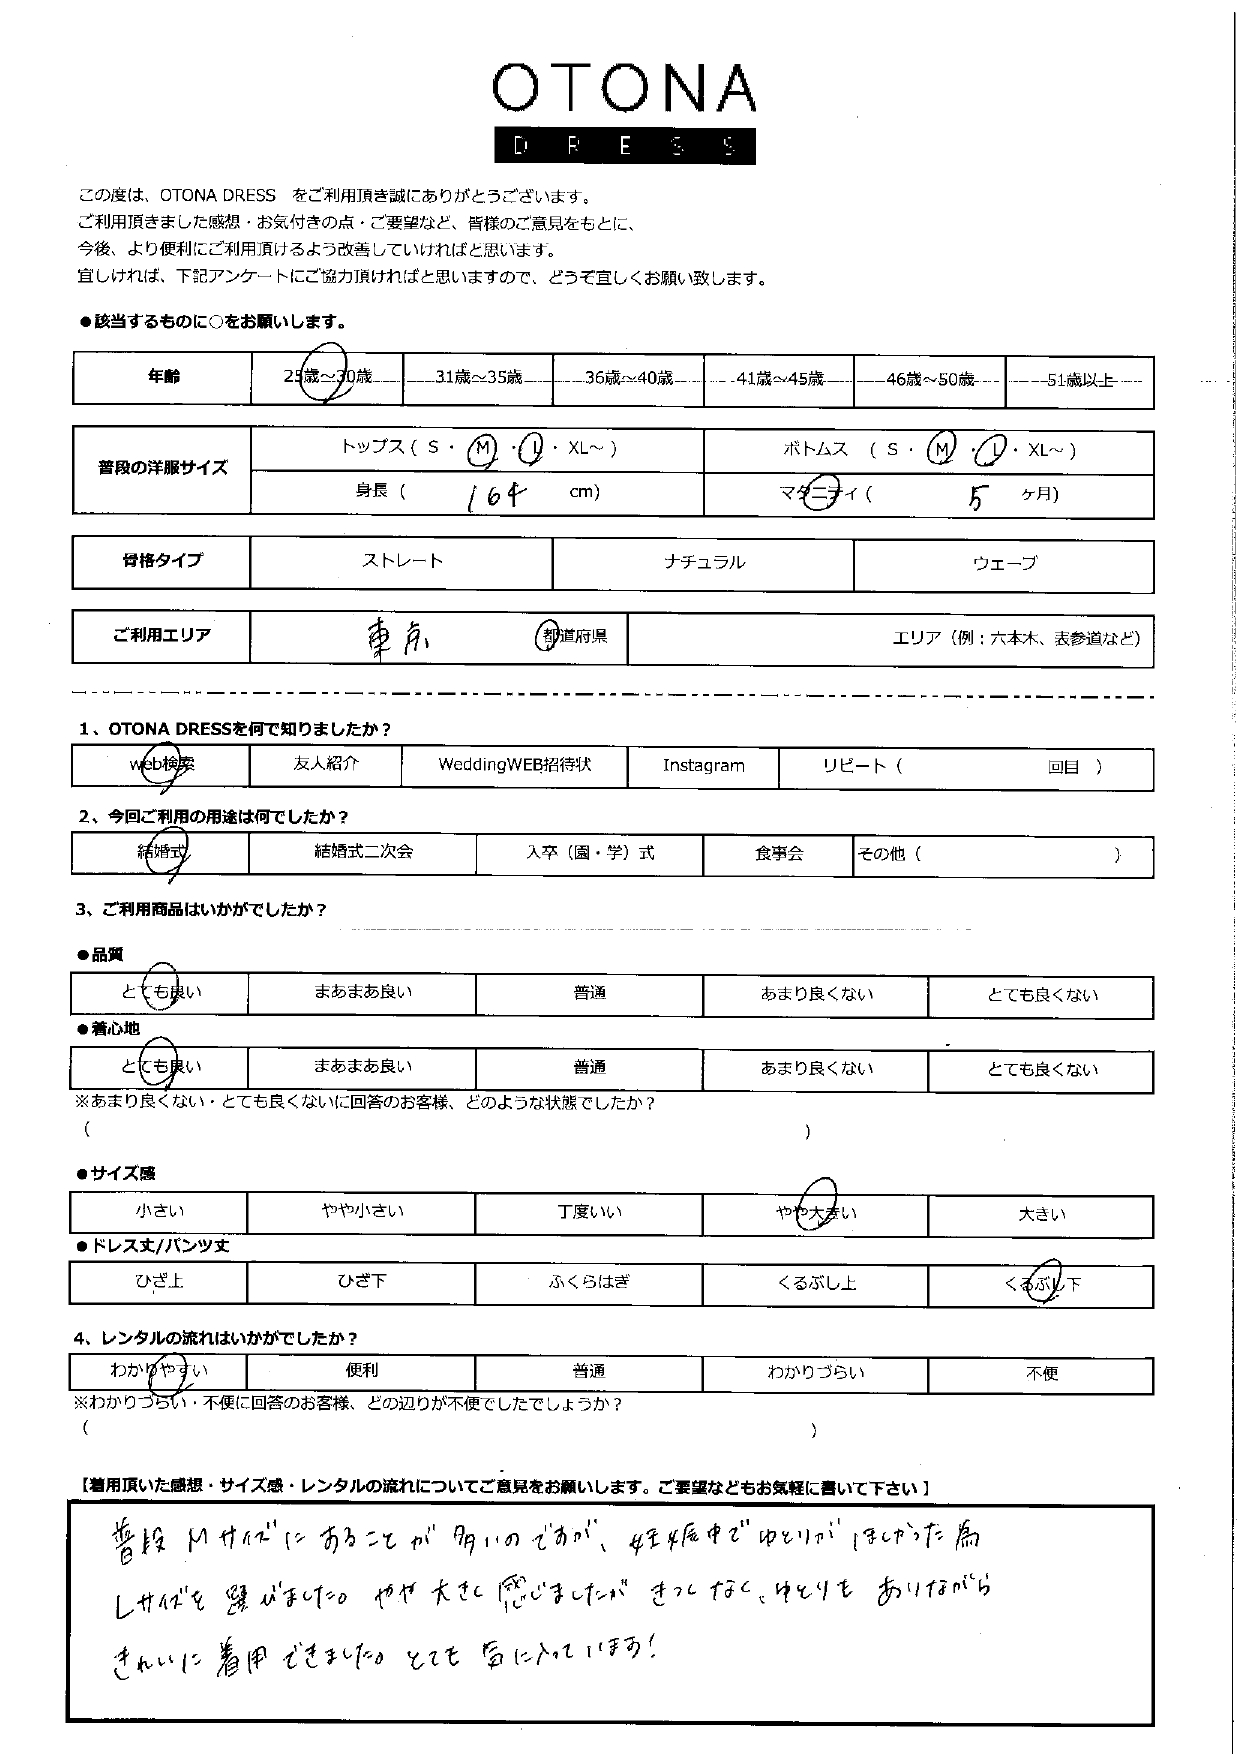 OTONA
DRESS
この度は、OTONA DRESS をご利用頂き誠にありがとうございます。
ご利用頂きました感想・お気付きの点・ご要望など、皆様のご意見をもとに、
今後、より便利にご利用頂けるよう改善していければと思います。
宜しければ、下記アンケートにご協力頂ければと思いますので、どうぞ宜しくお願い致します。
●該当するものに○をお願いします。
年齢 25歳～30歳 31歳～35歳 36歳～40歳 41歳～45歳 46歳～50歳 51歳以上
普段の洋服サイズ トップス ( S ・ M ・ L ・ XL～ ) ボトムス ( S ・ M ・ L ・ XL～ )
身長 ( 164 cm) マタニティ ( 5 ヶ月)
骨格タイプ ストレート ナチュラル ウェーブ
ご利用エリア 東京 都道府県 エリア（例：六本木、表参道など）
1、OTONA DRESSを何で知りましたか？
web検索 友人紹介 WeddingWEB招待状 Instagram リピート（ 回目 ）
2、今回ご利用の用途は何でしたか？
結婚式 結婚式二次会 入卒（園・学）式 食事会 その他（ ）
3、ご利用商品はいかがでしたか？
●品質
とても良い まあまあ良い 普通 あまり良くない とても良くない
●着心地
とても良い まあまあ良い 普通 あまり良くない とても良くない
※あまり良くない・とても良くないに回答のお客様、どのような状態でしたか？
（ ）
●サイズ感
小さい やや小さい 丁度いい やや大きい 大きい
●ドレス丈/パンツ丈
ひざ上 ひざ下 ふくらはぎ くるぶし上 くるぶし下
4、レンタルの流れはいかがでしたか？
わかりやすい 便利 普通 わかりづらい 不便
※わかりづらい・不便に回答のお客様、どの辺りが不便でしたでしょうか？
（ ）
【着用頂いた感想・サイズ感・レンタルの流れについてご意見をお願いします。ご要望などもお気軽に書いて下さい】
普段 Mサイズにあることが多いのですが、妊娠中でゆとりがほしかった為
Lサイズを選びました。やや大きく感じましたがきつくなく、ゆとりもありながら
きれいに着用できました。とても気に入っています！